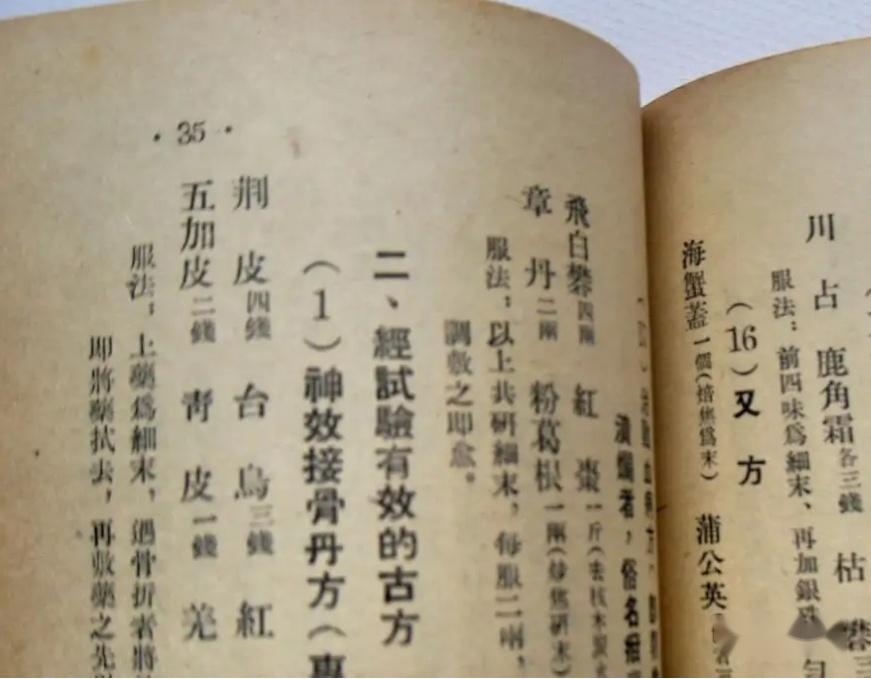 川占 鹿角霜各三錢 枯礬三
服法：前四味爲細末、再加銀珠
（16）又方
海蟹蓋一個（焙焦爲末） 蒲公英
潰爛者，俗名
飛白礬四兩 紅棗一斤（去核
章丹二兩 粉葛根一兩（炒焦研末）
服法；以上共研細末，每服二
調敷之即愈。
二、經試驗有效的古方
（1）神效接骨丹方（專
荆皮四錢 台烏三錢 紅
五加皮二錢 青皮一錢 羌
服法；上藥爲細末，遇骨折者將
即將藥拭去，再敷藥之先
·35·